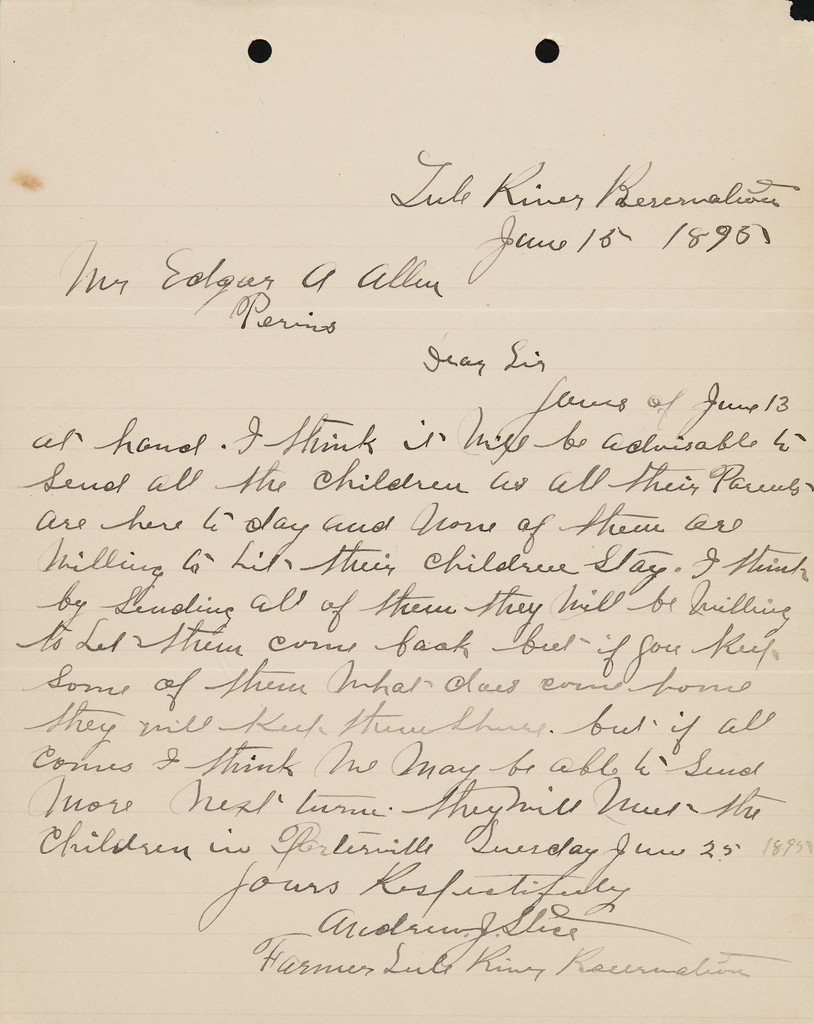 Tule River Reservation
June 15 1895
Mr Edgar A Allen
Perris
Dear Sir
Yours of June 13
at hand. I think it will be advisable to
Send all the children as all their Parents
are here to day and None of them are
Willing to Let their children Stay. I think
by Sending all of them they Will be Willing
to Let them come back but if you Keep
Some of them What does come home
they will Keep them . but if all
comes I think We May be able to Send
More Next turm. they Will Meet the
Children in Porterville Tuesday June 25 1895
Yours Respectifully
Andrew. J. Slice
Farmer Tule River Reservation